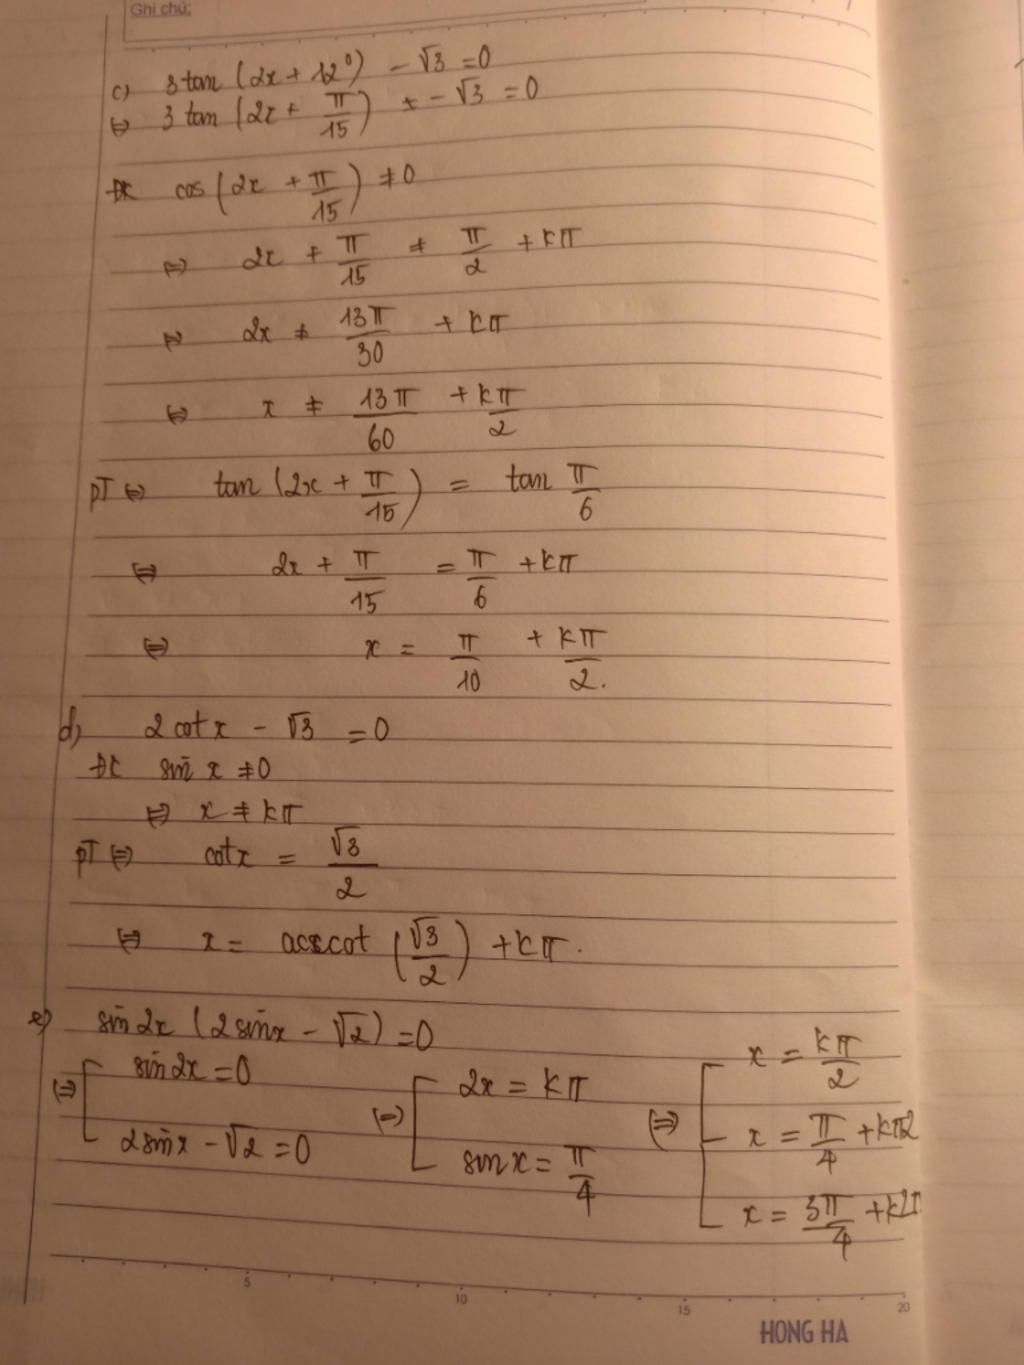 Ghi chú:
c) 3tan (2x + 12⁰) - √3 = 0
⇔ 3 tan (2x + π/15) + - √3 = 0
ĐK cos (2x + π/15) ≠ 0
⇔ 2x + π/15 ≠ π/2 + kπ
⇔ 2x ≠ 13π/30 + kπ
⇔ x ≠ 13π/60 + kπ/2
PT ⇔ tan (2x + π/15) = tan π/6
⇔ 2x + π/15 = π/6 + kπ
⇔ x = π/10 + kπ/2.
d) 2 cot x - √3 = 0
ĐK sin x ≠ 0
⇔ x ≠ kπ
PT ⇔ cot x = √3/2
⇔ x = accot (√3/2) + kπ.
e) sin 2x (2 sin x - √2) = 0
⇔ [ sin 2x = 0 ⇔ [ 2x = kπ ⇔ [ x = kπ/2
2 sin x - √2 = 0 sin x = π/4 x = π/4 + kπ2
x = 3π/4 + k2π
5 10 15 20
HONG HA